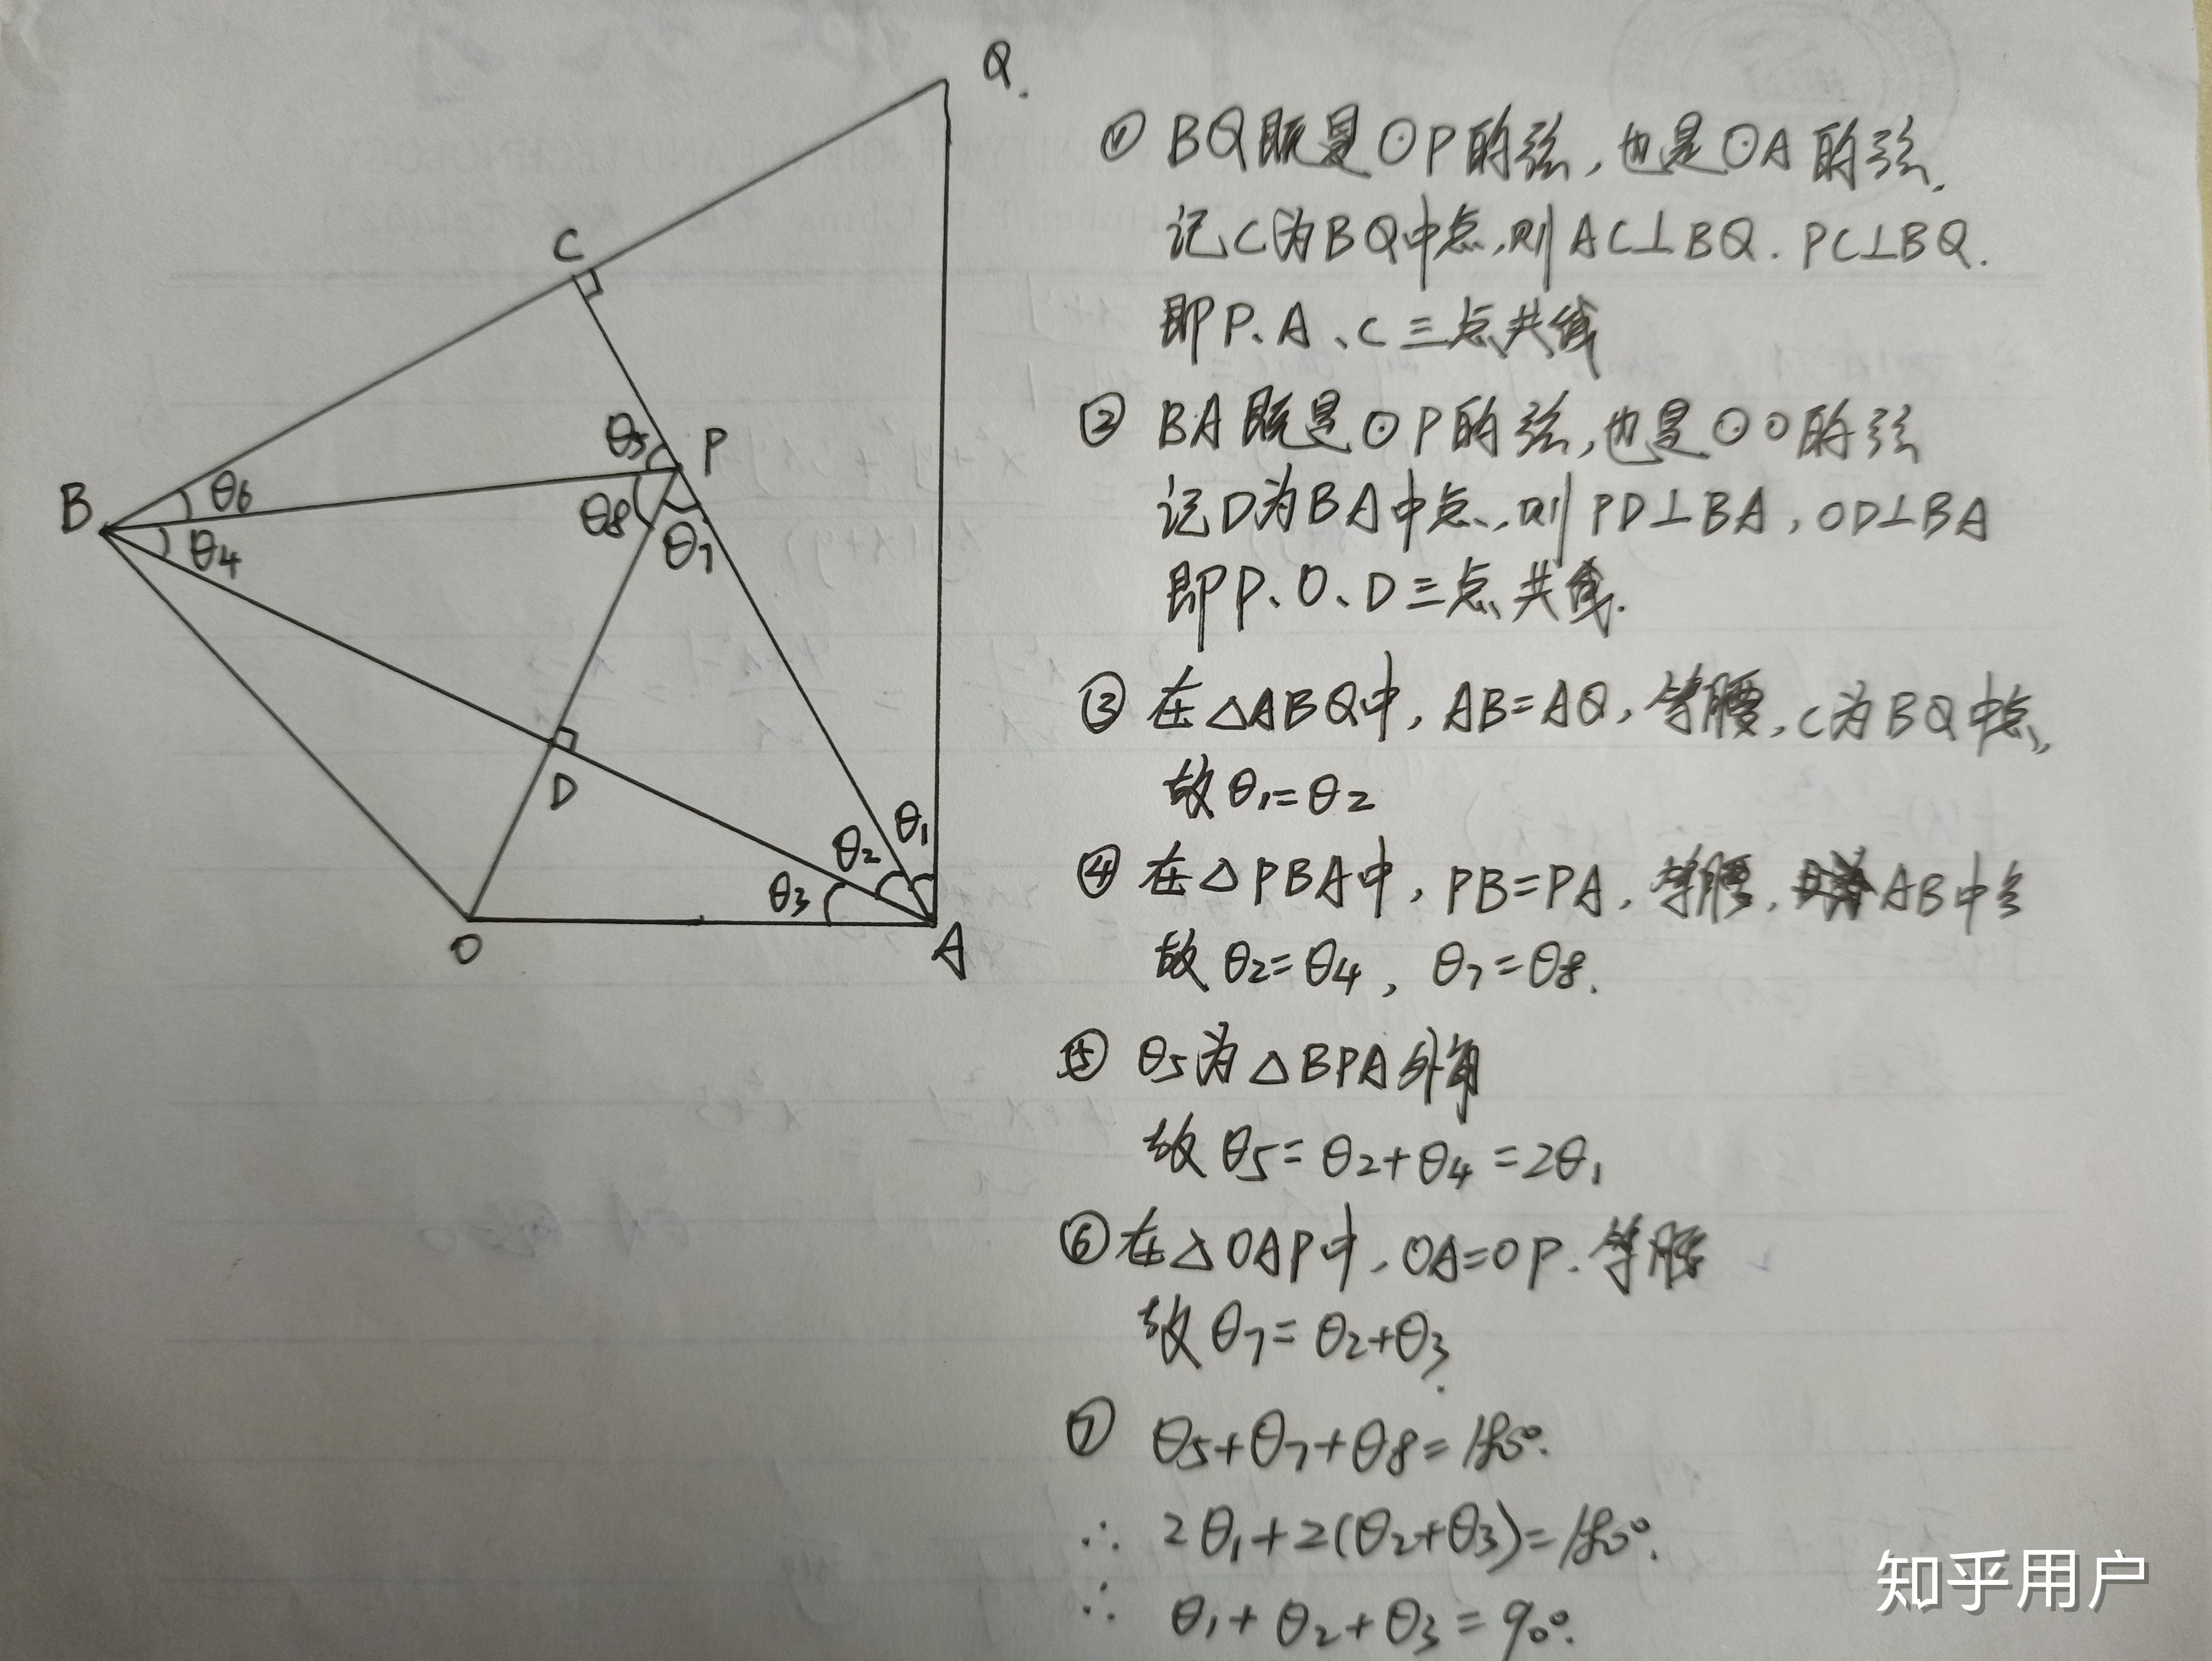 Q.
C
θ5 P
B θ6
θ8 θ7
θ4
D
θ1
θ2
θ3
O A
① BQ既是⊙P的弦,也是⊙A的弦.
记C为BQ中点,则AC⊥BQ. PC⊥BQ.
即P、A、C三点共线
② BA既是⊙P的弦,也是⊙O的弦
记D为BA中点,则PD⊥BA,OD⊥BA
即P、O、D三点共线.
③ 在△ABQ中,AB=AQ,等腰,C为BQ中点,
故θ1=θ2
④ 在△PBA中,PB=PA,等腰,AB中点
故θ2=θ4,θ7=θ8.
⑤ θ5为△BPA外角
故θ5=θ2+θ4=2θ1
⑥ 在△OAP中,OA=OP.等腰
故θ7=θ2+θ3
⑦ θ5+θ7+θ8=180°.
∴ 2θ1+2(θ2+θ3)=180°.
∴ θ1+θ2+θ3=90°.
知乎用户